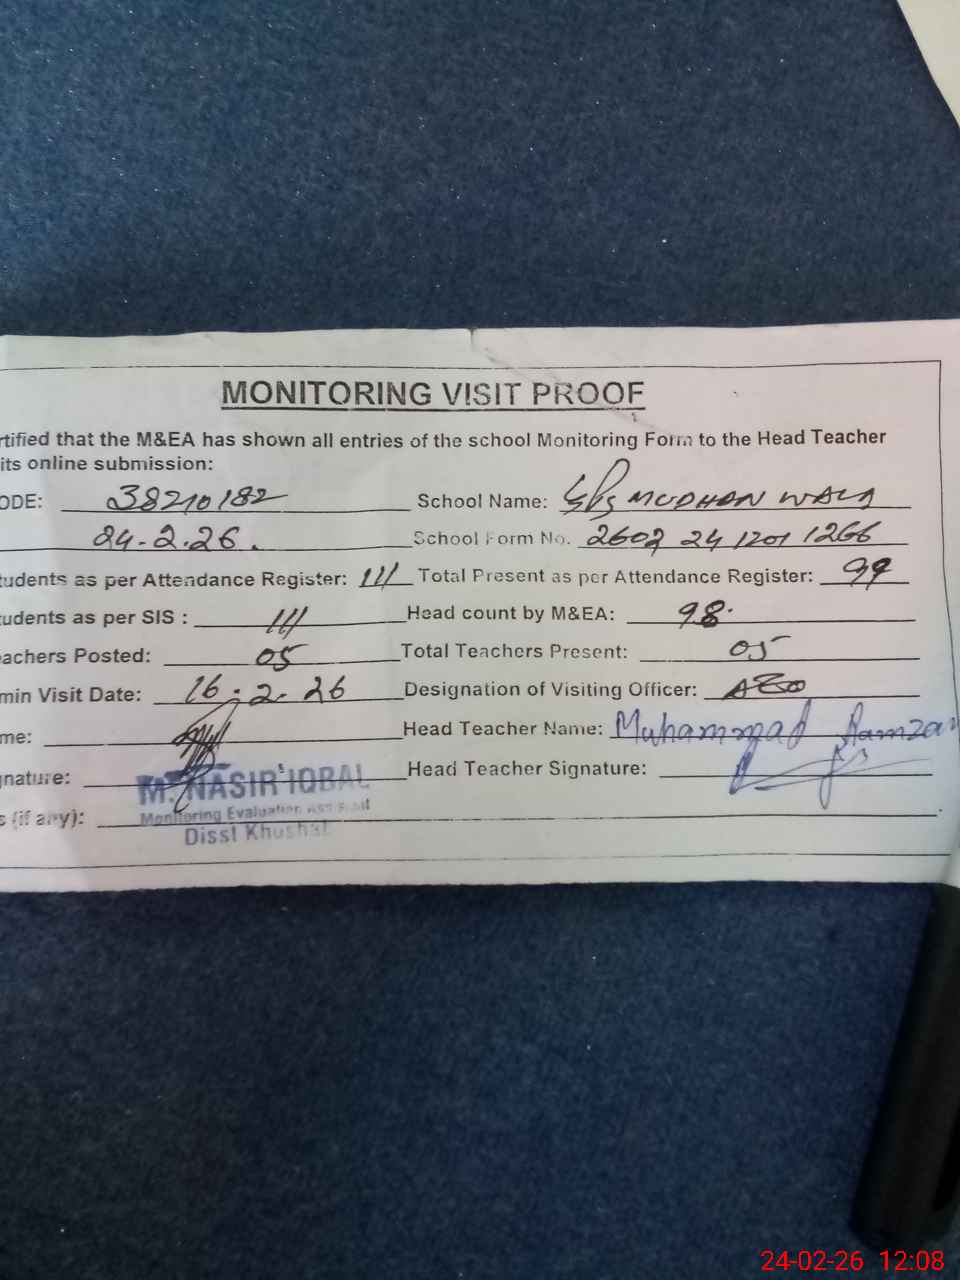 MONITORING VISIT PROOF
rtified that the M&EA has shown all entries of the school Monitoring Form to the Head Teacher
its online submission:
ODE: 38210182 School Name: GPS MUDHAN WALA
24-2.26. School Form No. 2602 24 1201 1266
tudents as per Attendance Register: 111 Total Present as per Attendance Register: 99
tudents as per SIS : 111 Head count by M&EA: 98.
achers Posted: 05 Total Teachers Present: 05
min Visit Date: 16-2-26 Designation of Visiting Officer: AEO
me: Head Teacher Name: Muhammad Ramzan
nature: Head Teacher Signature:
M. NASIR IQBAL
s (if any): Monitoring Evaluation Assistant
Disst Khushab
24-02-26 12:08